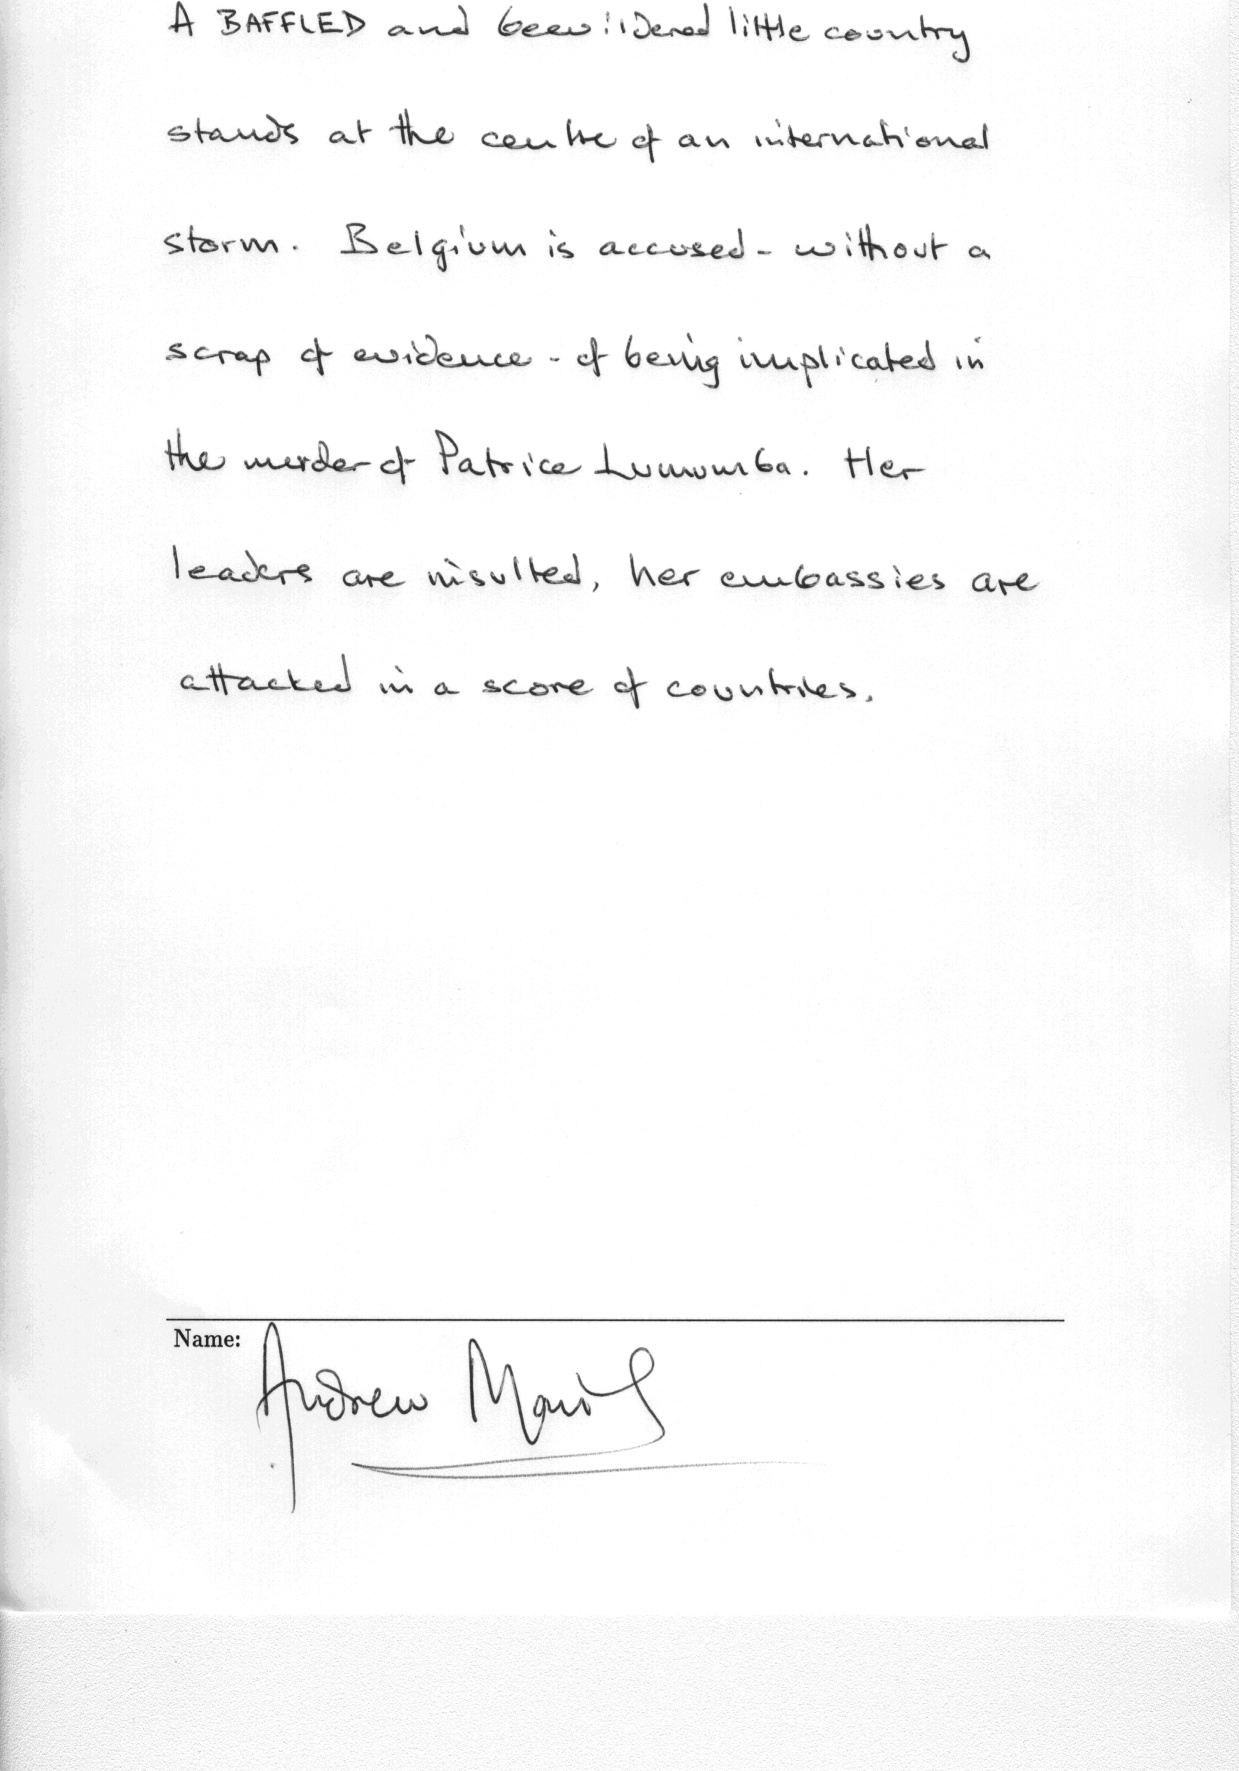 A BAFFLED and beewildered little country
stands at the centre of an international
storm. Belgium is accused - without a
scrap of evidence - of being implicated in
the murder of Patrice Lumumba. Her
leaders are insulted, her embassies are
attacked in a score of countries.
Name:
Andrew